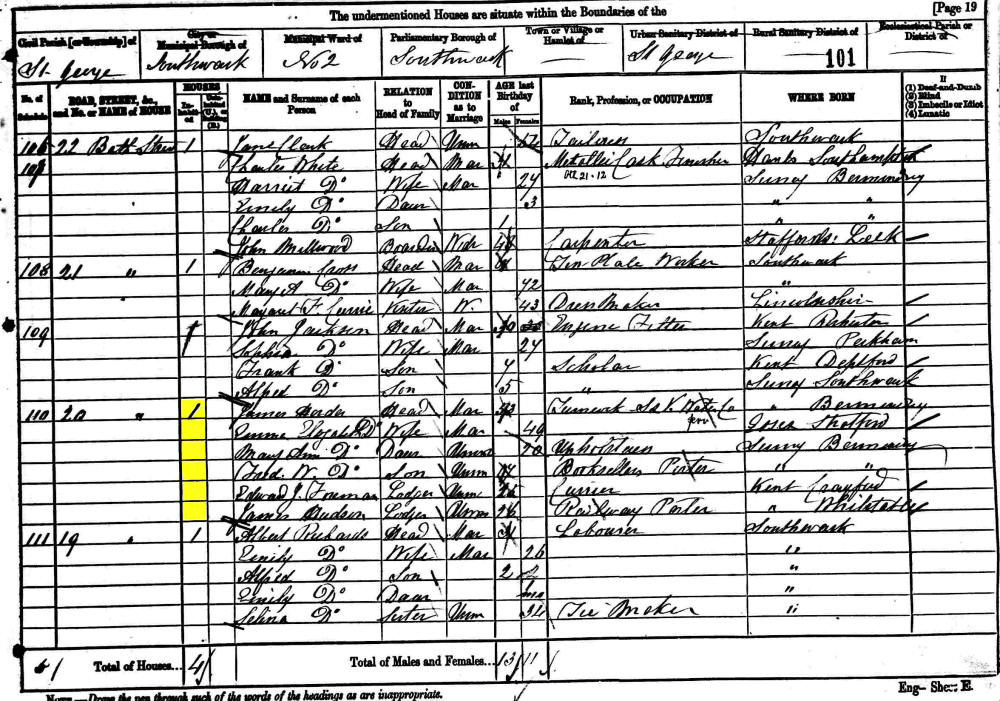 The undermentioned Houses are situate within the Boundaries of the [Page 19
Civil Parish [or Township] of City or Municipal Borough of Municipal Ward of Parliamentary Borough of Town or Village or Hamlet of Urban Sanitary District of Rural Sanitary District of Ecclesiastical Parish or District of
St. George Southwark No 2 Southwark St George 101
No. of Schedule ROAD, STREET, &c., and No. or NAME of HOUSE HOUSES Inhabited Uninhabited (U.), or Building (B.) NAME and Surname of each Person RELATION to Head of Family CONDITION as to Marriage AGE last Birthday of Males Females Rank, Profession, or OCCUPATION WHERE BORN If (1) Deaf-and-Dumb (2) Blind (3) Imbecile or Idiot (4) Lunatic
106 22 1 Jane Clark Head Unm Tailoress Southwark
Charles White Head Mar Metallic Cask Finisher Hants Southampton
Harriet Do Wife Mar 24 Surrey Bermondsey
Emily Do Daur 3 " "
Charles Do Son 1 " "
John Millwood Boarder Carpenter Staffords: Leek
108 21 " 1 Benjamin Head Mar Tin Plate Worker Southwark
Mary A Do Wife Mar 42 "
Margaret F. Currie Visitor W. 43 Dress Maker Lincolnshire
109 John Jackson Head Mar Engine Fitter Kent
Sophia Do Wife Mar 27 Surrey Peckham
Frank Do Son 7 Scholar Kent Deptford
Alfred Do Son 5 " Surrey Southwark
110 20 " 1 James Head Mar Turncock Water Co " Bermondsey
Emma Elizabeth Do Wife Mar 49 Essex Stratford
Mary Ann Do Daur Unm 20 Upholstress Surrey Bermondsey
Fredk. W. Do Son Unm Booksellers Porter " "
Edward J. Foreman Lodger Unm 25 Currier Kent Crayford
James Hudson Lodger Unm 26 Railway Porter " Whitstable
111 19 " 1 Albert Richards Head Mar Labourer Southwark
Emily Do Wife Mar 26 "
Alfred Do Son 2 "
Emily Do Daur "
Selina Do Sister Unm 34 Tie Maker "
Total of Houses... 4 Total of Males and Females... 13 11
NOTE.—Draw the pen through such of the words of the headings as are inappropriate.
Eng- Sheet E.